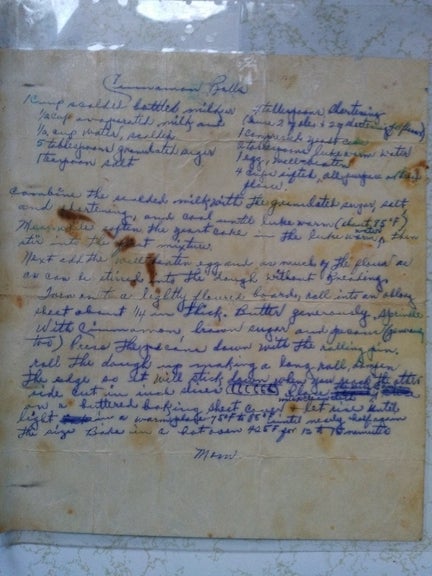 Cinnamon Rolls
1 cup scalded bottled milk or
1/2 cup evaporated milk and
1/2 cup water, scalded
5 tablespoons granulated sugar
1 teaspoon salt
7 tablespoons shortening
1 compressed yeast cake
2 tablespoons lukewarm water
1 egg, well-beaten
4 cups sifted, all purpose
flour.
Combine the scalded milk with the granulated sugar, salt
and shortening, and cool until lukewarm (about 85°F)
Meanwhile soften the yeast cake in the luke warm water, then
stir into the first mixture.
Next add the well beaten egg and as much of the flour as
can be stirred into the dough without kneading.
Turn onto a lightly floured board, roll into an oblong
sheat about 1/4 in thick. Butter generously, sprinkle
with Cinnamon, brown sugar and pecans
too) Press the pecans down with the rolling pin.
roll the dough up making a long roll, dampen
the edge so it will stick
side cut in inch slices
in a buttered baking sheet & let rise until
light in a warm place 75°F to 85°F until nearly half again
the size Bake in a hot oven 425°F for 12 to 15 minutes
Mom.